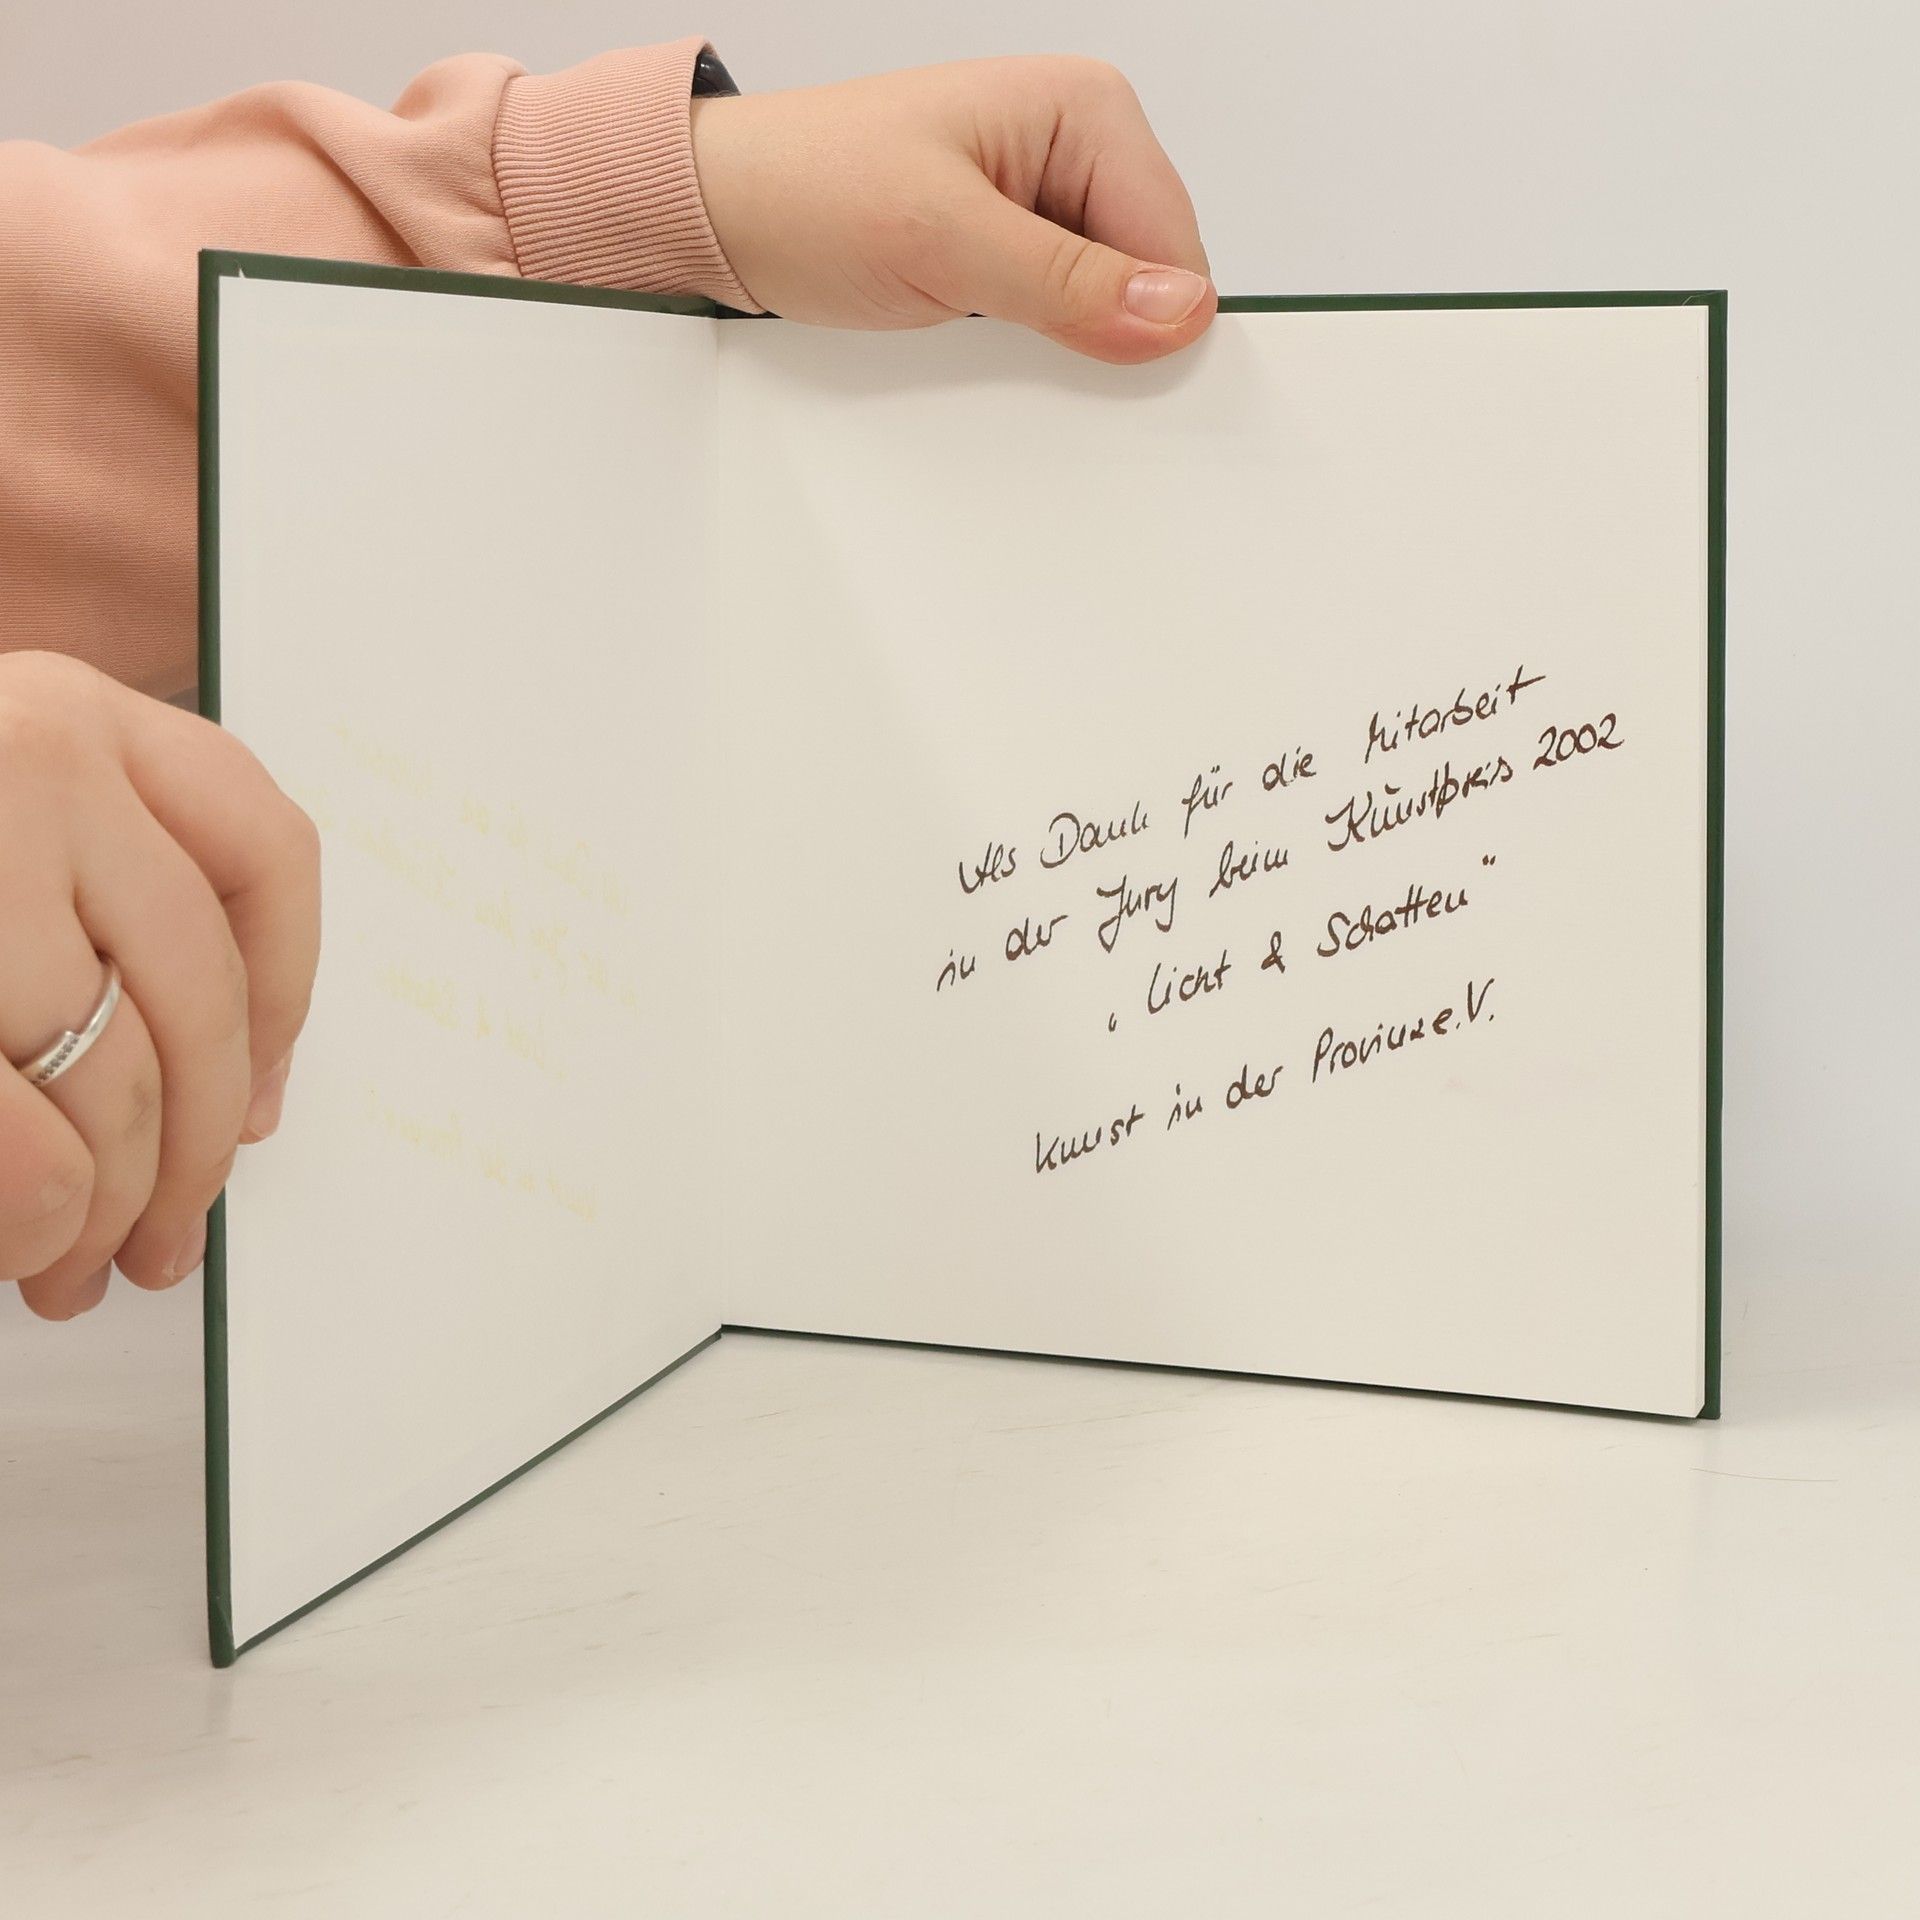 Als Dank für die Mitarbeit
in der Jury beim Kunstpreis 2002
„Licht & Schatten"
Kunst in der Provinz e.V.